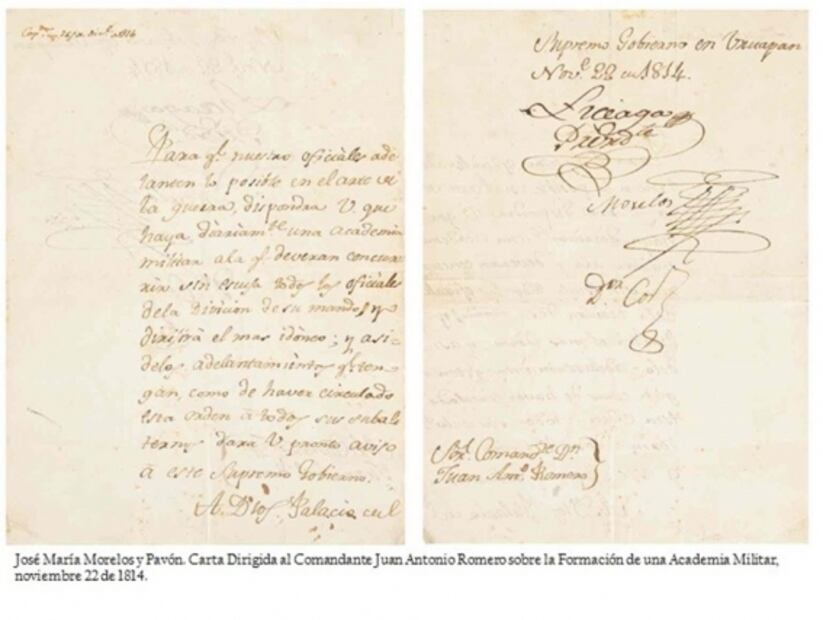 1814
Para q.e nuestros oficiales ade
lanten lo posible en el arte de
la guerra, dispondra V. que
haya diariam.te una academia
militar ala q.e deveran concur
rir sin escusa todos los oficiales
dela Divicion de su mando, y
dirijirá el mas idoneo; y asi
delos adelantamientos q.e ten
gan, como de haver circulado
esta orden á todos sus subal
ternos dará V. pronto aviso
á este Supremo Gobierno.
A. Dios. Palacio
Supremo Gobierno en Uruapan
Nov.e 22 de 1814.
Liceaga
Presid.te
Morelos
D.or Cos
Sor. Comand.te Dn.
Juan Ant.o Romero
José María Morelos y Pavón. Carta Dirigida al Comandante Juan Antonio Romero sobre la Formación de una Academia Militar,
noviembre 22 de 1814.